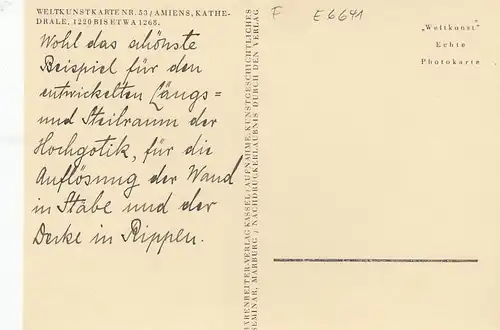 WELTKUNSTKARTE NR. 53 / AMIENS, KATHE-
DRALE, 1220 BIS ETWA 1268.
Wohl das schönste
Beispiel für den
entwickelten Längs=
und Steilraum der
Hochgotik, für die
Auflösung der Wand
in Stäbe und der
Decke in Rippen.
BÄRENREITER-VERLAG KASSEL / AUFNAHME: KUNSTGESCHICHTLICHES
SEMINAR, MARBURG / NACHDRUCKERLAUBNIS DURCH DEN VERLAG
F E6641
„Weltkunst”
Echte
Photokarte